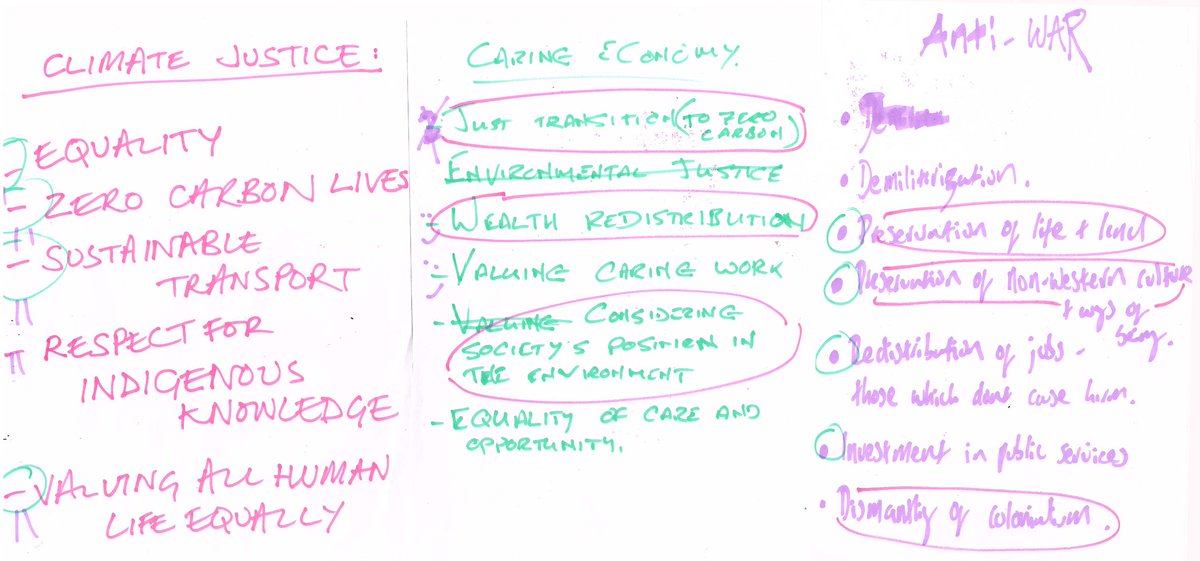 CLIMATE JUSTICE:
EQUALITY
- ZERO CARBON LIVES
- SUSTAINABLE
TRANSPORT
RESPECT FOR
INDIGENOUS
KNOWLEDGE
- VALUING ALL HUMAN
LIFE EQUALLY
CARING ECONOMY.
- JUST TRANSITION (TO ZERO
CARBON)
ENVIRONMENTAL JUSTICE
- WEALTH REDISTRIBUTION
- VALUING CARING WORK
- VALUING CONSIDERING
SOCIETY'S POSITION IN
THE ENVIRONMENT
- EQUALITY OF CARE AND
OPPORTUNITY.
Anti-WAR
• Demiliterization.
• Preservation of life + land
• Preservation of non-western culture
+ ways of
being.
• Redistribution of jobs -
those which dont cause harm.
• Investment in public services
• Dismantling of colonialism.